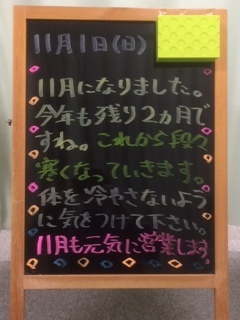 11月1日(日)
11月になりました。
今年も残り2ヵ月で
すね。これから段々
寒くなっていきます。
体を冷やさないよう
に気をつけて下さい。
11月も元気に営業します。